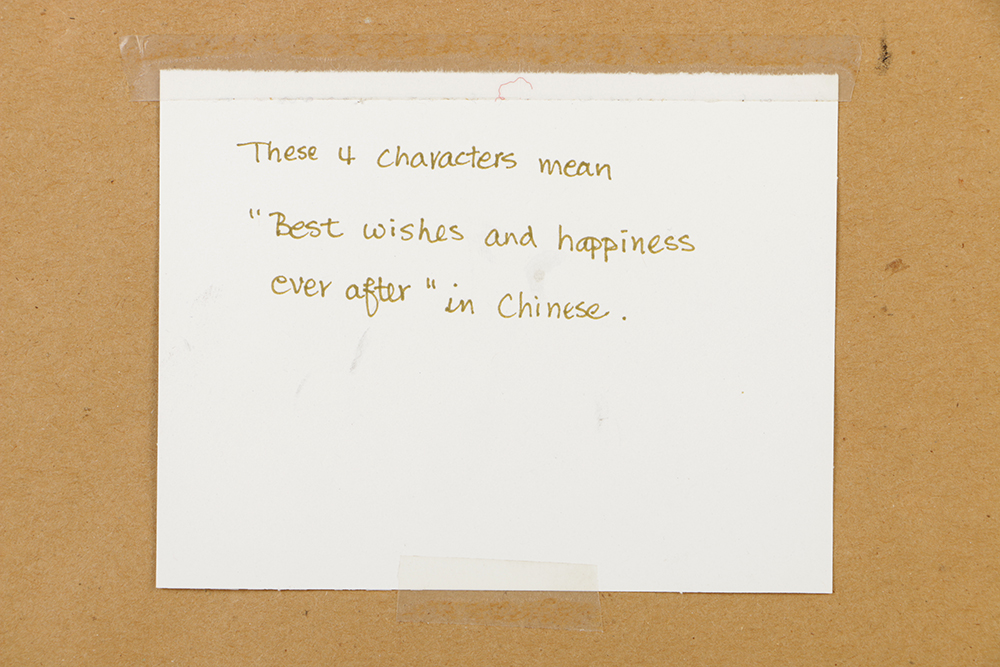 These 4 characters mean
"Best wishes and happiness
ever after" in Chinese.